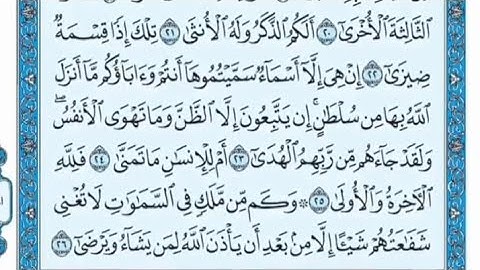 ٱلثَّالِثَةَ ٱلْأُخْرَىٰٓ ٢٠ أَلَكُمُ ٱلذَّكَرُ وَلَهُ ٱلْأُنثَىٰ ٢١ تِلْكَ إِذًا قِسْمَةٌ
ضِيزَىٰٓ ٢٢ إِنْ هِىَ إِلَّآ أَسْمَآءٌ سَمَّيْتُمُوهَآ أَنتُمْ وَءَابَآؤُكُم مَّآ أَنزَلَ
ٱللَّهُ بِهَا مِن سُلْطَٰنٍ ۚ إِن يَتَّبِعُونَ إِلَّا ٱلظَّنَّ وَمَا تَهْوَى ٱلْأَنفُسُ ۖ
وَلَقَدْ جَآءَهُم مِّن رَّبِّهِمُ ٱلْهُدَىٰٓ ٢٣ أَمْ لِلْإِنسَٰنِ مَا تَمَنَّىٰ ٢٤ فَلِلَّهِ
ٱلْأٓخِرَةُ وَٱلْأُولَىٰ ٢٥ ۞ وَكَم مِّن مَّلَكٍ فِى ٱلسَّمَٰوَٰتِ لَا تُغْنِى
شَفَٰعَتُهُمْ شَيْـًٔا إِلَّا مِنۢ بَعْدِ أَن يَأْذَنَ ٱللَّهُ لِمَن يَشَآءُ وَيَرْضَىٰٓ ٢٦